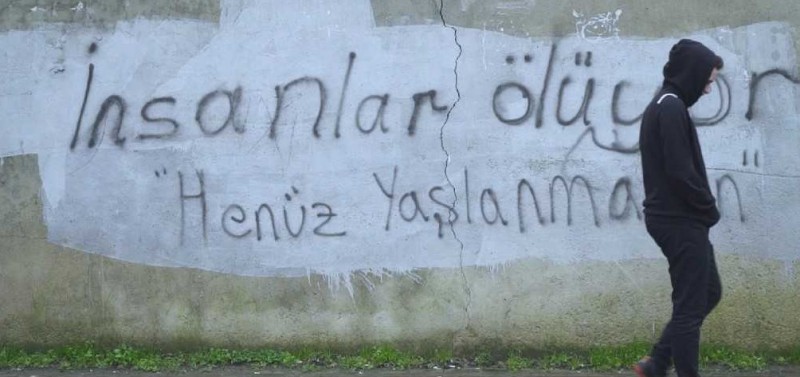 İnsanlar ölüyor
"Henüz Yaşlanmadan"